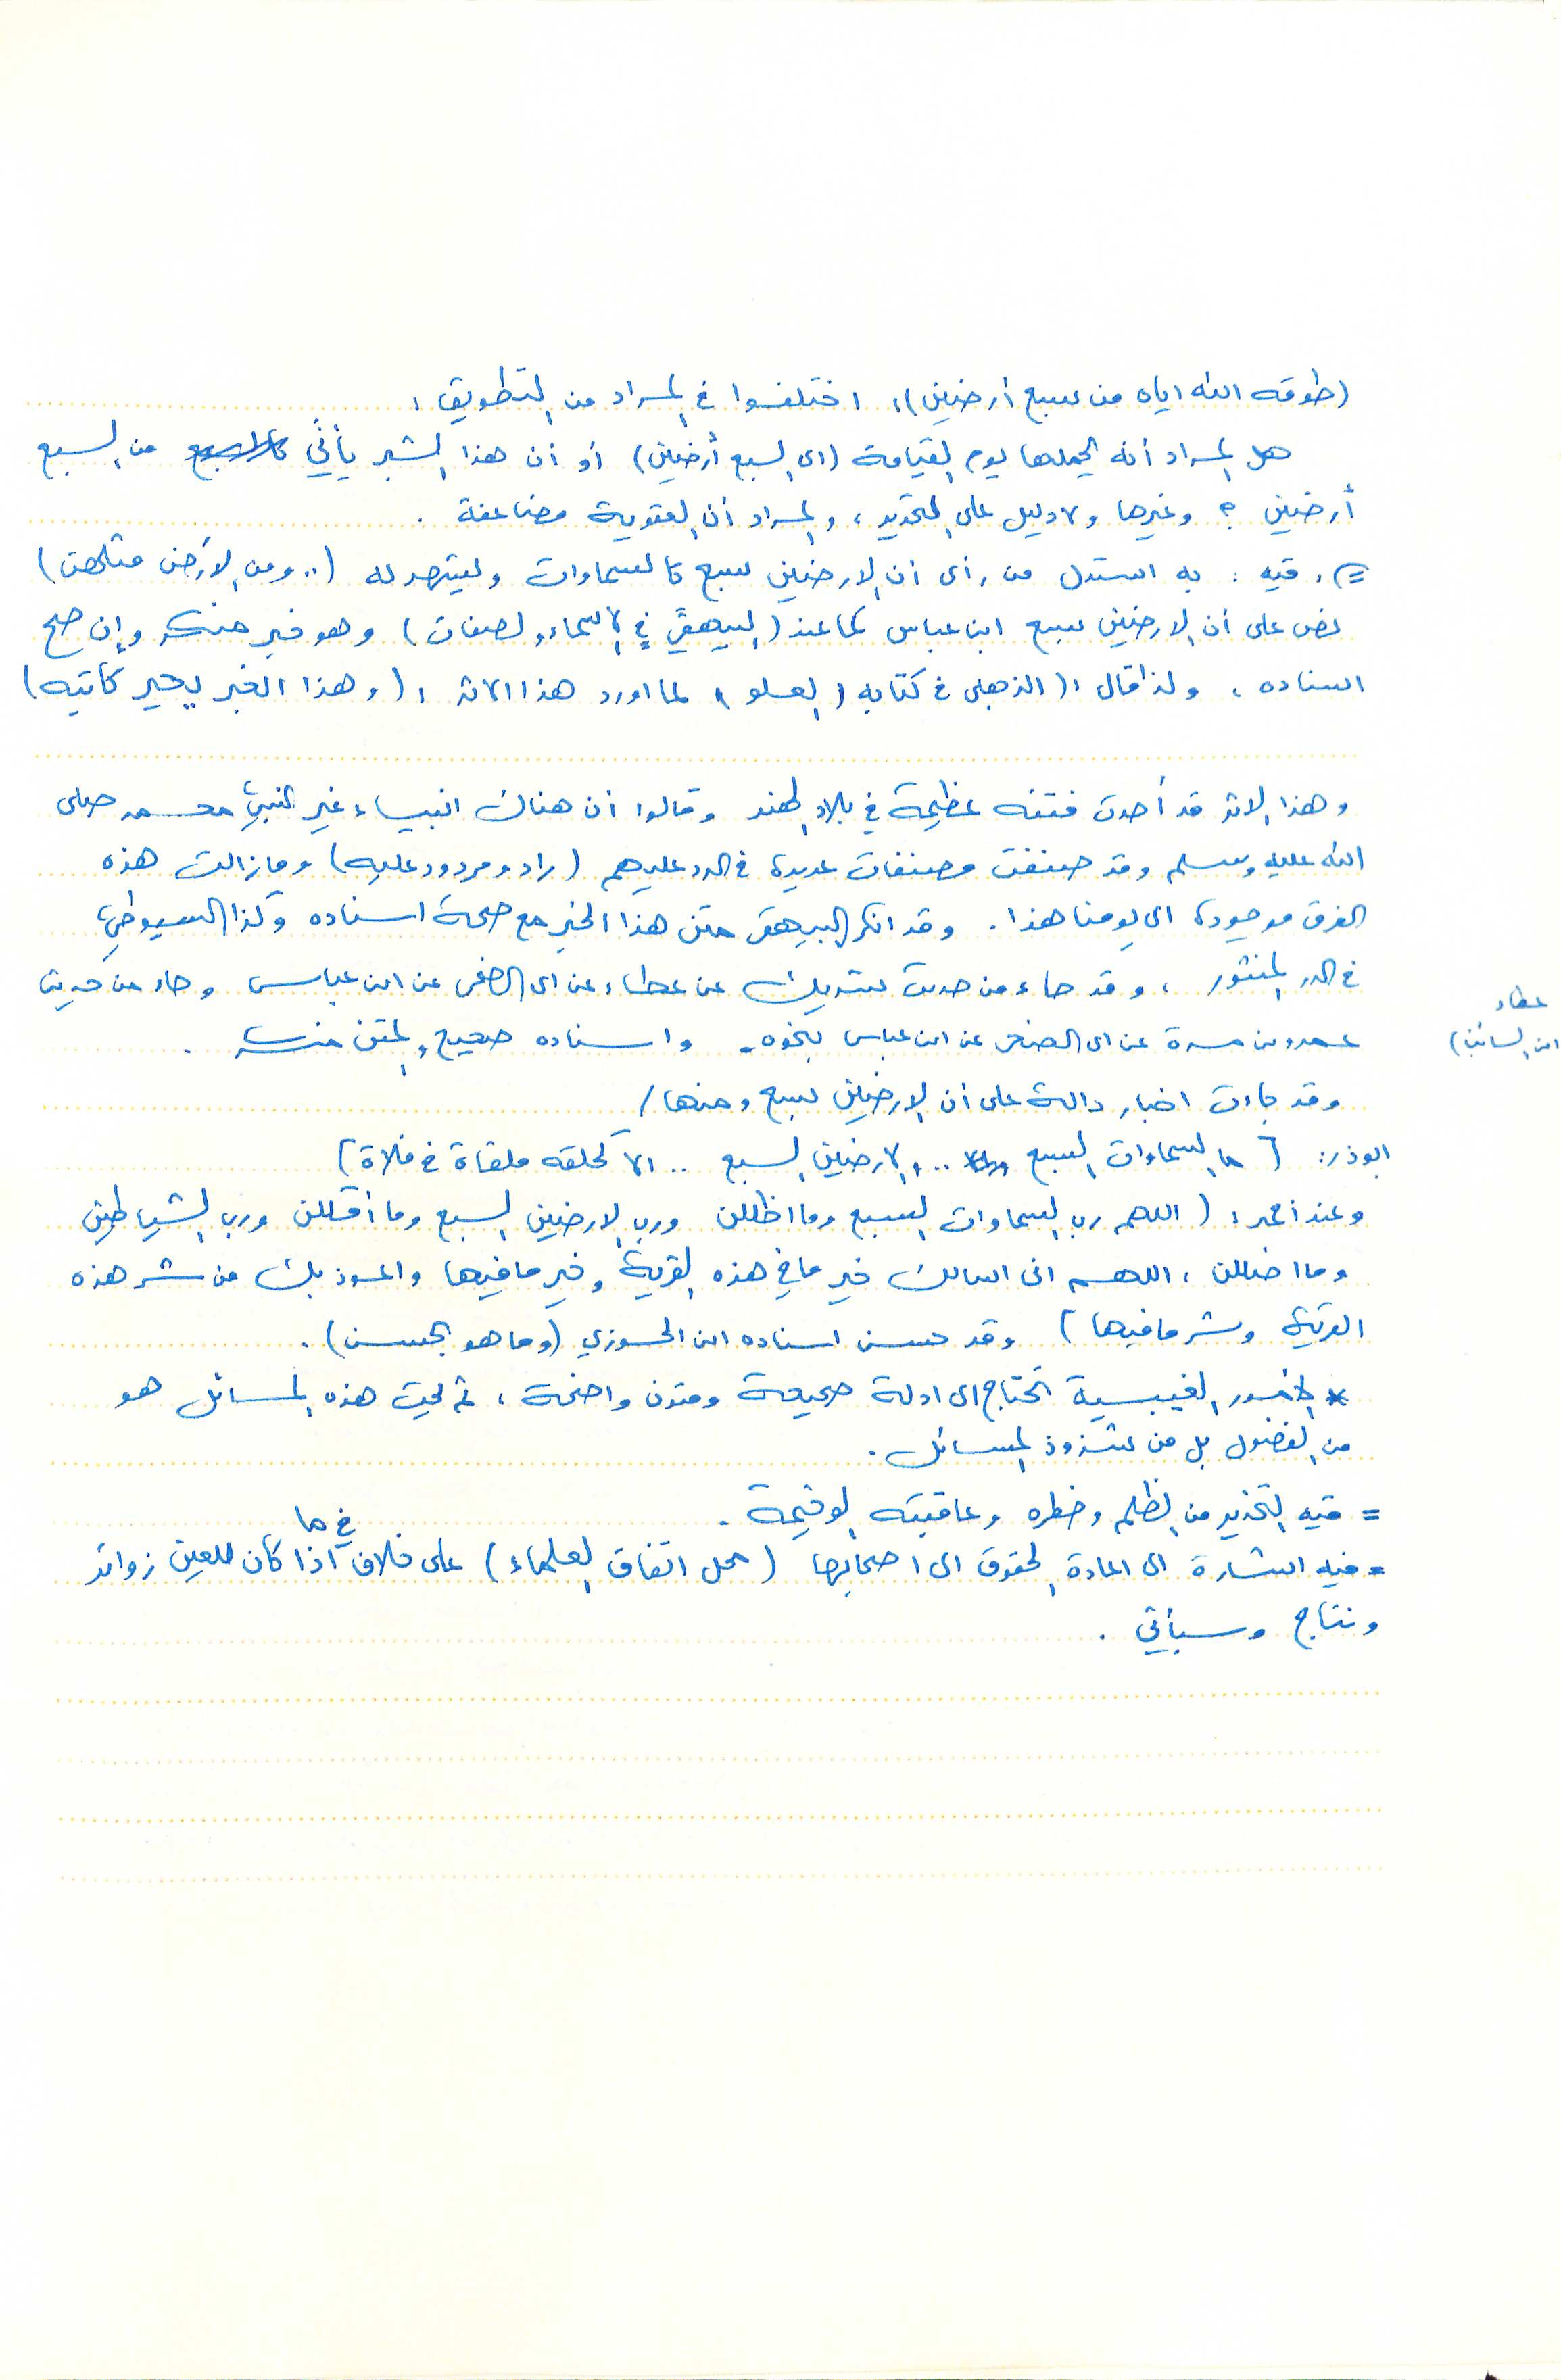 (طوقه الله اياه من سبع أرضين): اختلفوا في المراد من التطويق:
هل المراد أنه يحملها يوم القيامة (اى السبع أرضين) أو أن هذا الشبر يأتي من السبع
أرضين ؟ وغيرها ولا دليل على التحديد، والمراد أن العقوبة مضاعفة .
=، فيه: به استدل من رأى أن الارضين سبع كالسماوات ويشهد له (.. ومن الأرض مثلهن)
نص على أن الارضين سبع ابن عباس كما عند (البيهقي في الاسماء والصفات) وهو خبر منكر وإن صح
اسناده، ولذا قال: (الذهبى في كتابه (العلو) لما اورد هذا الاثر: (وهذا الخبر يحير كاتبه)
وهذا الاثر قد أحدث فتنه عظيمة في بلاد الهند وقالوا أن هناك انبياء غير النبي محمد صلى
الله عليه وسلم وقد صنفت مصنفات عديدة في الرد عليهم (راد ومردود عليه) ومازالت هذه
الفرق موجودة الى يومنا هذا. وقد انكر البيهقي متن هذا الخبر مع صحة اسناده وكذا السيوطي
في الدر المنثور، وقد جاء من حديث شريك عن عطاء عن ابى الضحى عن ابن عباس وجاء من حديث
عطاء
ابن السائب)
عمرو بن مرة عن ابى الضحى عن ابن عباس بنحوه. واسناده صحيح والمتن منكر .
وقد جاءت اخبار دالة على أن الارضين سبع ومنها/
ابو ذر: (ما السماوات السبع .. والارضين السبع .. الا كحلقه ملقاة في فلاة)
وعند أحمد: (اللهم رب السماوات السبع وما اظللن ورب الارضين السبع وما أقللن ورب الشياطين
وما اضللن، اللهم انى اسالك خير ما في هذه القرية وخير ما فيها واعوذ بك من شر هذه
القرية وشر ما فيها) وقد حسن اسناده ابن الجوزي (وما هو بحسن).
* الامور الغيبية تحتاج الى ادلة صحيحة ومتون واضحة، ثم بحث هذه المسائل هو
من الفضول بل من شذوذ المسائل.
= فيه التحذير من الظلم وخطره وعاقبته الوخيمة.
= فيه اشارة الى اعادة الحقوق الى اصحابها (محل اتفاق العلماء) على خلاف في ما اذا كان للعين زوائد
ونتاج وسيأتي .